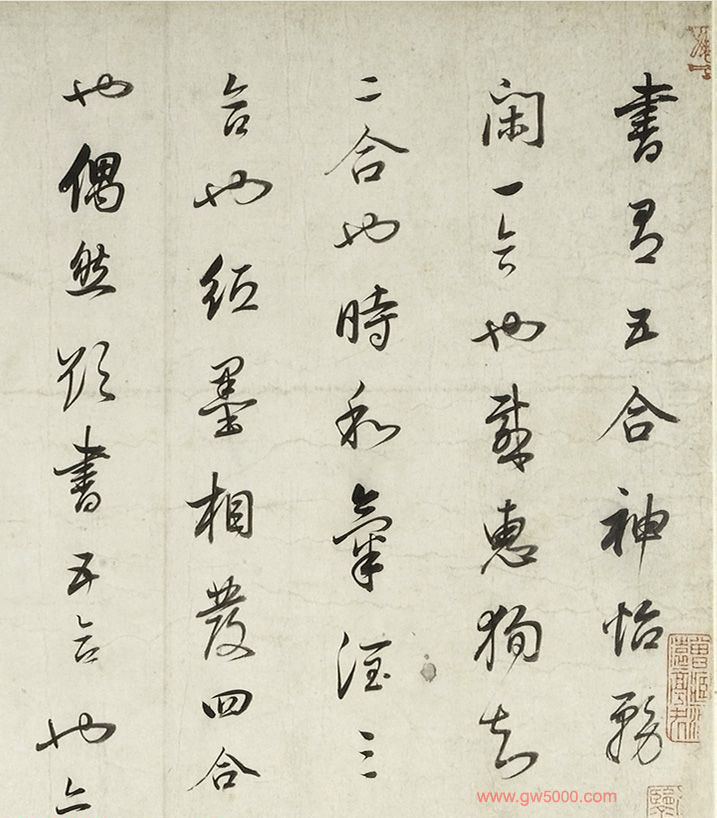 書有五合神怡務
閑一合也感惠狥知
二合也時和氣潤三
合也紙墨相發四合
也偶然欲書五合也
www.gw5000.com